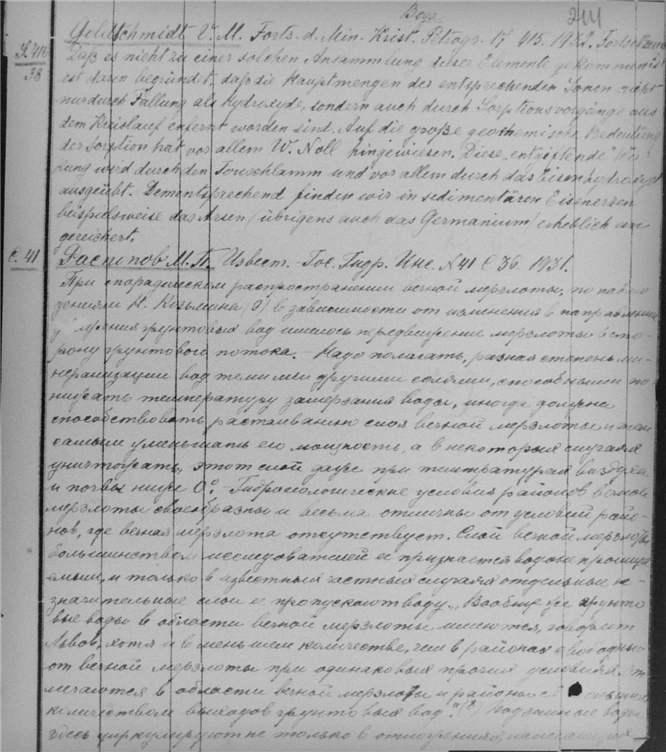 Вода
241
Goldschmidt V. M. Forts. d. Min. Krist. Petrogr. 17 415. 1932.
S. 416
38
Daß es nicht zu einer solchen Ansammlung dieser Elemente gekommen ist
ist darin begründet, daß die Hauptmengen der entsprechenden Ionen nicht
nur durch Fällung als Hydroxyde, sondern auch durch Sorptionsvorgänge aus
dem Kreislauf entfernt worden sind. Auf die große geochemische Bedeutung
der Sorption hat vor allem W. Noll hingewiesen. Diese „entgiftende" Wir-
kung wird durch den Tonschlamm und vor allem durch das Eisenhydroxyd
ausgeübt. Dementsprechend finden wir in sedimentären Eisenerzen
beispielsweise das Arsen (übrigens auch das Germanium) erheblich an
gereichert.
С. 41
Распопов М. П. Извест. Гос. Гидр. Инс. N 41 С. 36. 1931.
При спорадическом распространении вечной мерзлоты, по наблю
дениям Н. Козьмина (9) в зависимости от изменения в направлении
грунтовых вод имелось передвижение мерзлоты в сто-
рону грунтового потока. - Надо полагать, разная степень ми-
нерализации вод теми или другими солями, способными по-
нижать температуру замерзания воды, иногда должна
способствовать растаиванию слоя вечной мерзлоты и тем
самым уменьшать его мощность, а в некоторых случаях
уничтожать, этот слой даже при температурах воздуха
и почвы ниже 0°. - Гидрогеологические условия районов вечной
мерзлоты своеобразны и весьма отличны от условий райо-
нов, где вечная мерзлота отсутствует. Слой вечной мерзлоты
большинством исследователей её признается водонепроница
емым, и только в известных частных случаях отдельные не-
значительные слои её пропускают воду. „Вообще же грунто
вые воды в области вечной мерзлоты имеются, говорит
Львов, хотя и в меньшем количестве, чем в районах свободных
от вечной мерзлоты при одинаковых прочих условиях. Вст
мечаются в области вечной мерзлоты и районы с
количеством выходов грунтовых вод" (8) Подземные воды
здесь циркулируют не только в отношении